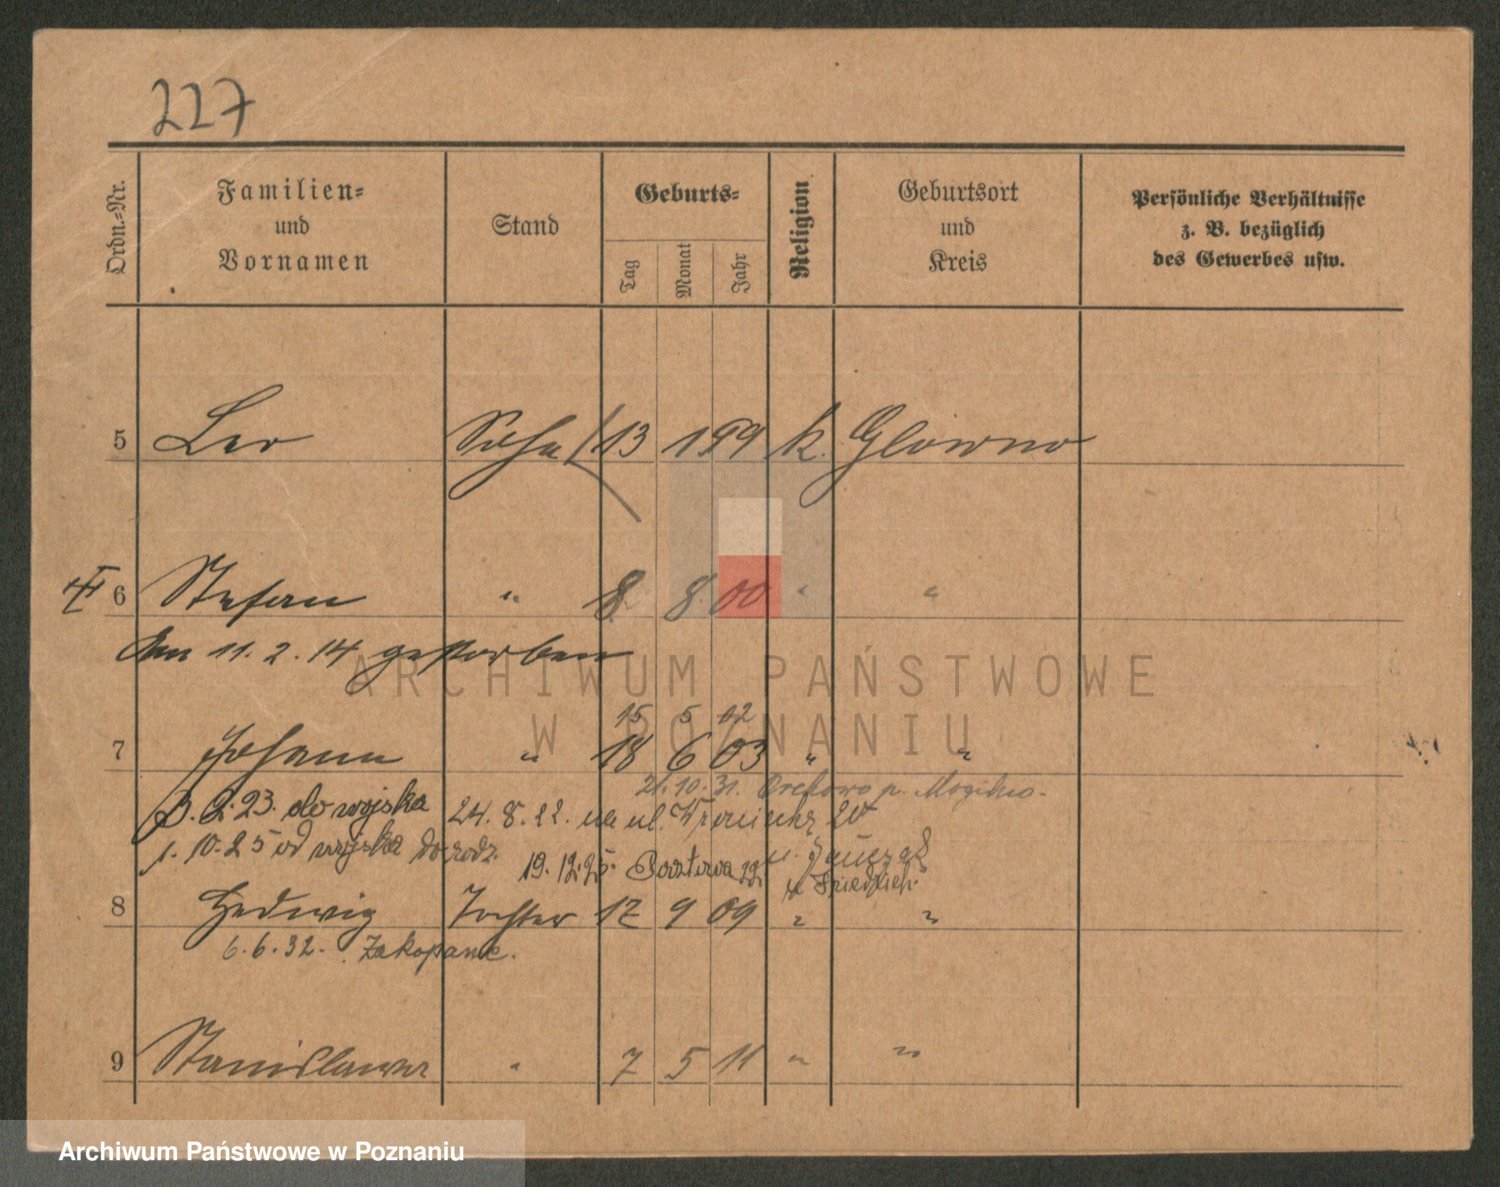 227
Ordn.-Nr.
Familien-
und
Vornamen
Stand
Geburts-
Tag
Monat
Jahr
Religion
Geburtsort
und
Kreis
Persönliche Verhältnisse
z. B. bezüglich
des Gewerbes usw.
5 Leo Sohn 13 1 99 k. Glowno
6 Stefan " 8. 8. 00 " "
Am 11. 2. 14 gestorben
ARCHIWUM PAŃSTWOWE
15 5 02
W POZNANIU
7 Johann " 18 6 03 " "
21.10.31. p. Mogilno.
3. 2. 23. do wojska 24. 8. 22. na ul. 20
1. 10. 25 od wojska do rodz. 19. 12. 25. Pocztowa 22
u. Friedrich.
8 Hedwig Tochter 17 9 09 " "
6. 6. 32. Zakopane.
9 Stanislawa " 7 5 11 " "
Archiwum Państwowe w Poznaniu